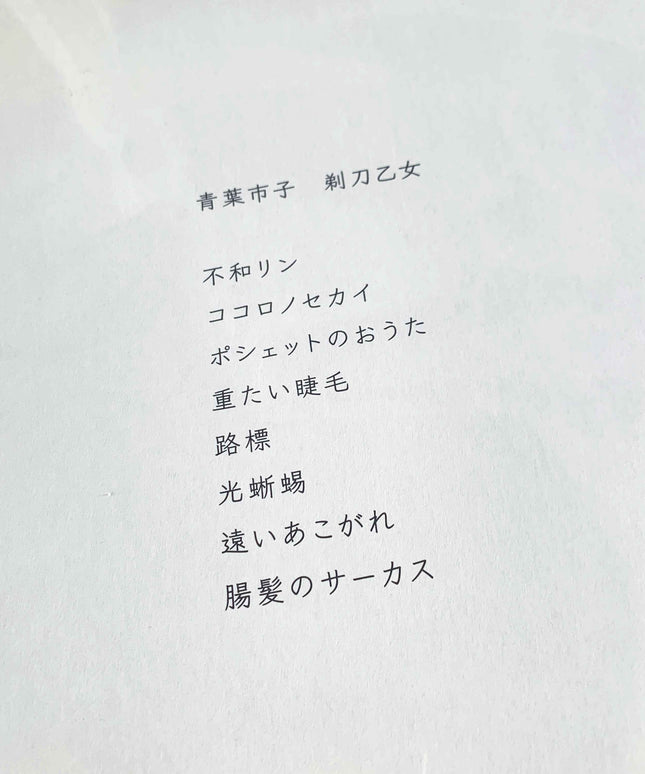 青葉市子　剃刀乙女
不和リン
ココロノセカイ
ポシェットのおうた
重たい睫毛
路標
光蜥蜴
遠いあこがれ
腸髪のサーカス